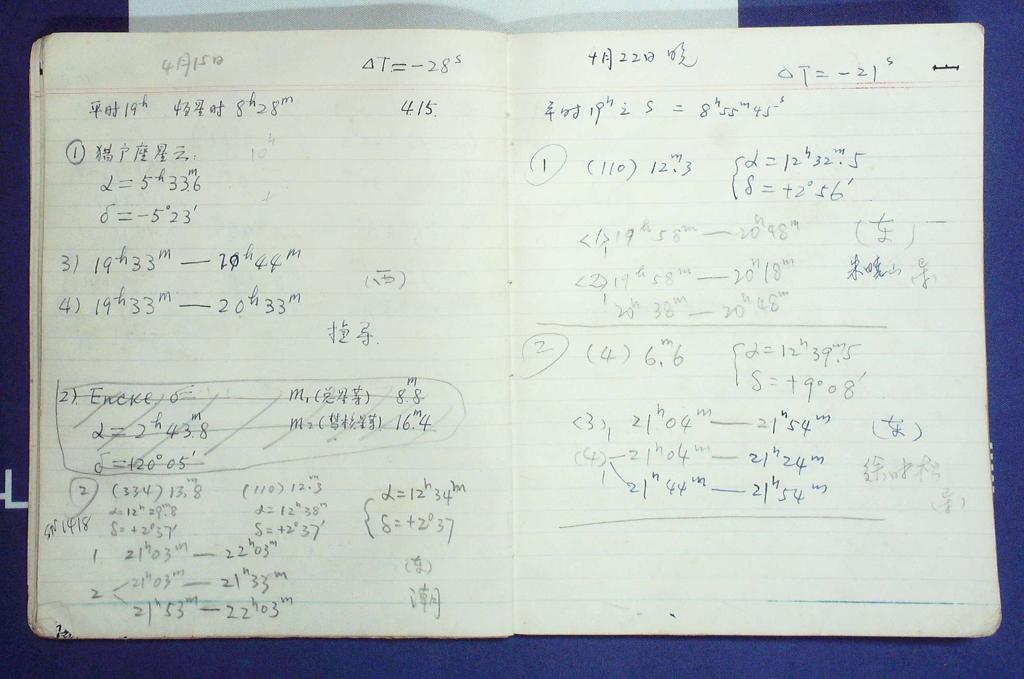 4月15日 ΔT=-28ˢ
平时19ʰ 恒星时 8ʰ28ᵐ 4.15.
① 猎户座星云: 10ʰ
α=5ʰ33ᵐ.6
δ=-5°23′
3) 19ʰ33ᵐ — 20ʰ44ᵐ
(西)
4) 19ʰ33ᵐ — 20ʰ33ᵐ
指导
2) Encke m₁(总星等) 8ᵐ.8
α=2ʰ43ᵐ.8 m₂(彗核星等) 16ᵐ.4
δ=+20°05′
② (334) 13ᵐ.8 (110) 12ᵐ.3 α=12ʰ34ᵐ
α=12ʰ29ᵐ.8 α=12ʰ38ᵐ
1418 δ=+2°37′ δ=+2°37′ δ=+2°37
1 21ʰ03ᵐ — 22ʰ03ᵐ (东)
2 21ʰ03ᵐ — 21ʰ33ᵐ
21ʰ53ᵐ — 22ʰ03ᵐ
4月22日 晚 ΔT=-21ˢ
平时19ʰ之 S = 8ʰ55ᵐ45ˢ
① (110) 12ᵐ.3 α=12ʰ32ᵐ.5
δ=+2°56′
<1> 19ʰ58ᵐ — 20ʰ48ᵐ (东)
<2> 19ʰ58ᵐ — 20ʰ18ᵐ 朱晓山 导
20ʰ38ᵐ — 20ʰ48ᵐ
② (4) 6ᵐ.6 α=12ʰ39ᵐ.5
δ=+9°08′
<3> 21ʰ04ᵐ — 21ʰ54ᵐ (东)
(4) 21ʰ04ᵐ — 21ʰ24ᵐ
21ʰ44ᵐ — 21ʰ54ᵐ
(导)